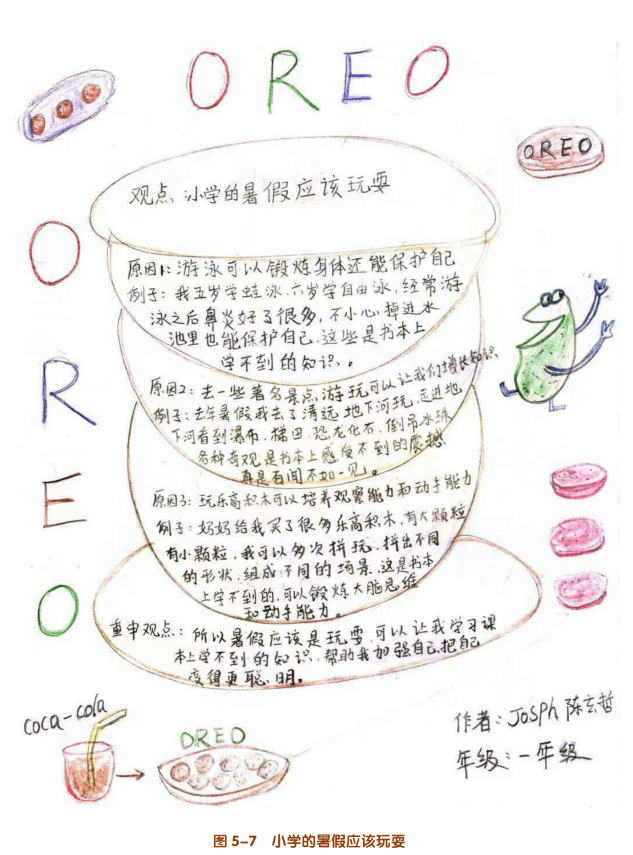 OREO
OREO
观点：小学的暑假应该玩耍
原因1：游泳可以锻炼身体还能保护自己
例子：我五岁学蛙泳，六岁学自由泳，经常游
泳之后鼻炎好了很多，不小心掉进水
池里也能保护自己，这些是书本上
学不到的知识。
原因2：去一些著名景点游玩可以让我们增长知识
例子：去年暑假我去了清远地下河玩，走进地
下河看到瀑布、梯田、恐龙化石、倒吊水珠
各种奇观是书本上感受不到的震撼
真是百闻不如一见。
原因3：玩乐高积木可以培养观察能力和动手能力
例子：妈妈给我买了很多乐高积木，有大颗粒
有小颗粒，我可以多次拼玩，拼出不同
的形状，组成不同的场景，这是书本
上学不到的，可以锻炼大脑思维
和动手能力。
重申观点：所以暑假应该是玩耍，可以让我学习课
本上学不到的知识，帮助我加强自己，把自己
变得更聪明。
O
R
E
O
coca-cola
OREO
作者：Josph 陈玄哲
年级：一年级
图 5-7 小学的暑假应该玩耍